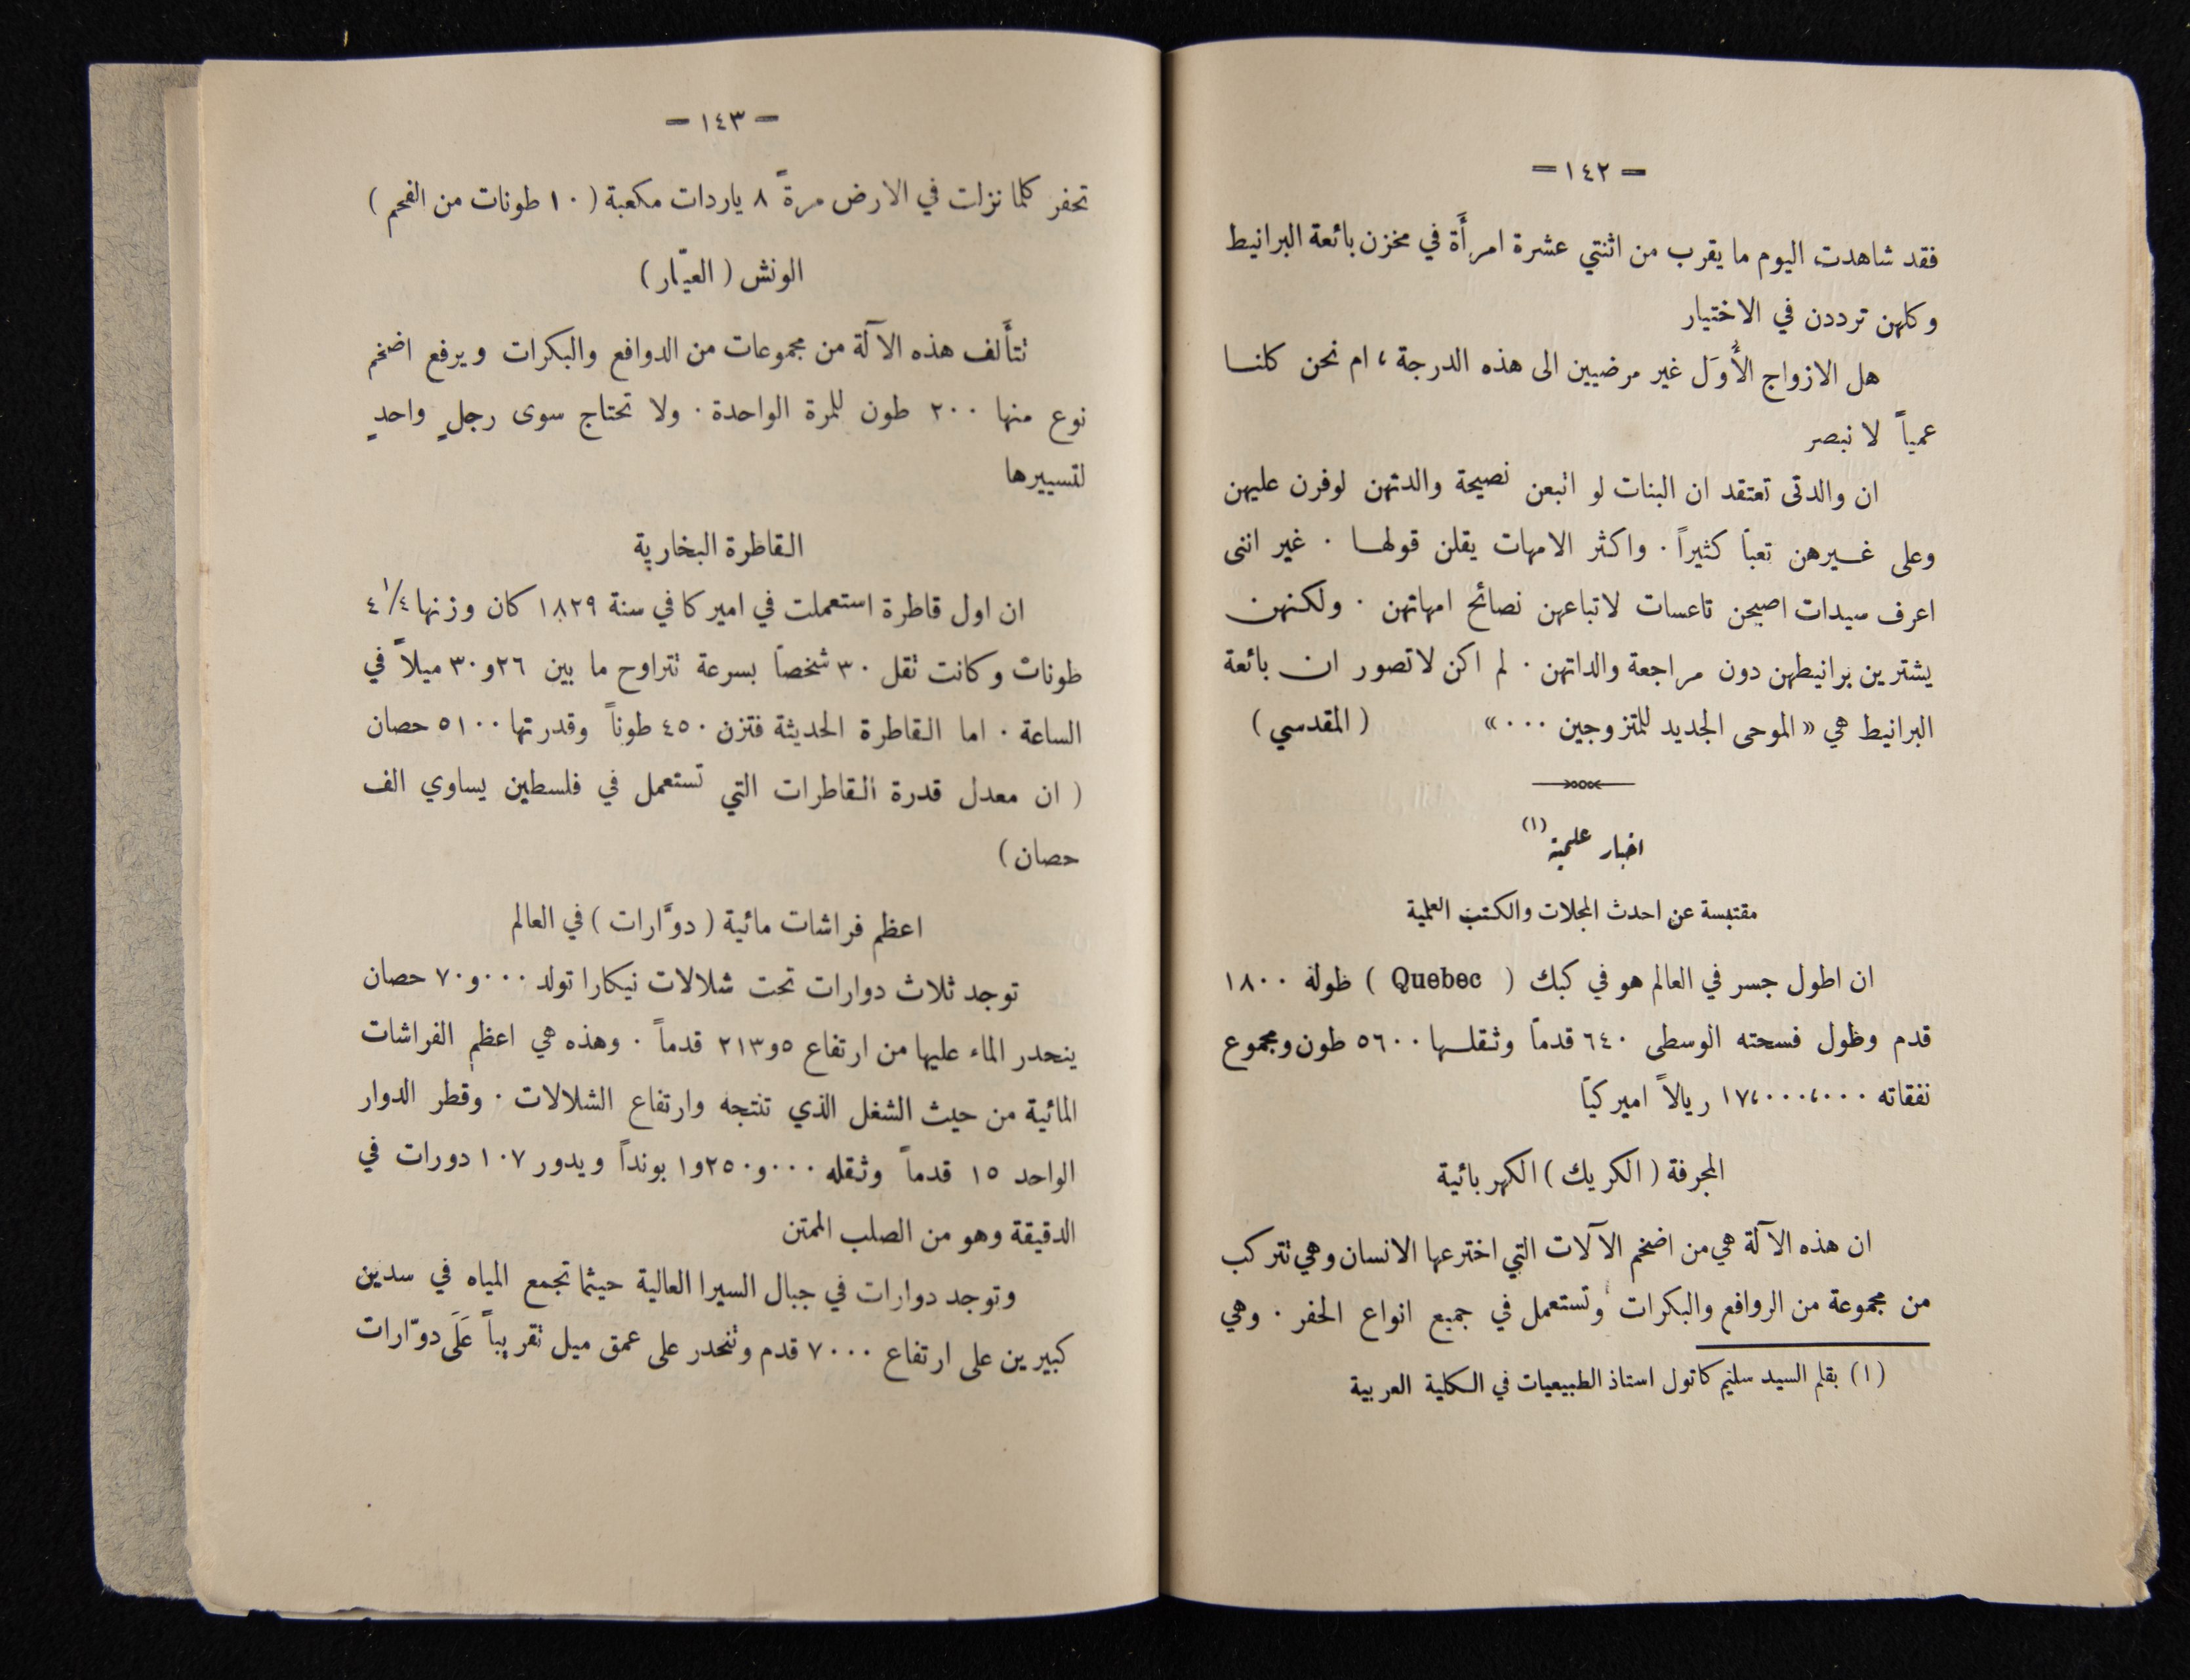 — ١٤٢ —
فقد شاهدت اليوم ما يقرب من اثنتي عشرة امرأَة في مخزن بائعة البرانيط
وكلهن ترددن في الاختيار
هل الازواج الأُوَل غير مرضيين الى هذه الدرجة ، ام نحن كلنا
عمياً لا نبصر
ان والدتى تعتقد ان البنات لو اتبعن نصيحة والدتهن لوفرن عليهن
وعلى غيرهن تعباً كثيراً . واكثر الامهات يقلن قولها . غير اننى
اعرف سيدات اصبحن تاعسات لاتباعهن نصائح امهاتهن . ولكنهن
يشترين برانيطهن دون مراجعة والداتهن . لم اكن لاتصور ان بائعة
البرانيط هي « الموحى الجديد للمتزوجين ... » ( المقدسي )
اخبار علمية (١)
مقتبسة عن احدث المجلات والكتب العلمية
ان اطول جسر في العالم هو في كبك ( Quebec ) طوله ١٨٠٠
قدم وطول فسحته الوسطى ٦٤٠ قدماً وثقلها ٥٦٠٠ طون ومجموع
نفقاته ١٧،٠٠٠،٠٠٠ ريالاً اميركيّا
المجرفة ( الكريك ) الكهربائية
ان هذه الآلة هي من اضخم الآلات التي اخترعها الانسان وهي تتركب
من مجموعة من الروافع والبكرات وتستعمل في جميع انواع الحفر . وهي
(١) بقلم السيد سليم كاتول استاذ الطبيعيات في الكلية العربية
— ١٤٣ —
تحفر كلما نزلت في الارض مرةً ٨ ياردات مكعبة ( ١٠ طونات من الفحم )
الونش ( العيّار )
تتأَلف هذه الآلة من مجموعات من الدوافع والبكرات ويرفع اضخم
نوع منها ٢٠٠ طون للمرة الواحدة . ولا تحتاج سوى رجلٍ واحدٍ
لتسييرها
القاطرة البخارية
ان اول قاطرة استعملت في اميركا في سنة ١٨٢٩ كان وزنها ٤ ١/٤
طونات وكانت تقل ٣٠ شخصاً بسرعة تتراوح ما بين ٢٦ و ٣٠ ميلاً في
الساعة . اما القاطرة الحديثة فتزن ٤٥٠ طوناً وقدرتها ٥١٠٠ حصان
( ان معدل قدرة القاطرات التي تستعمل في فلسطين يساوي الف
حصان )
اعظم فراشات مائية ( دوَّارات ) في العالم
توجد ثلاث دوارات تحت شلالات نيكارا تولد ٧٠و٠٠٠ حصان
ينحدر الماء عليها من ارتفاع ٢١٣و٥ قدماً . وهذه هي اعظم الفراشات
المائية من حيث الشغل الذي تنتجه وارتفاع الشلالات . وقطر الدوار
الواحد ١٥ قدماً وثقله ١و٢٥٠و٠٠٠ بونداً ويدور ١٠٧ دورات في
الدقيقة وهو من الصلب الممتن
وتوجد دوارات في جبال السيرا العالية حيثما تجمع المياه في سدين
كبيرين على ارتفاع ٧٠٠٠ قدم وتنحدر على عمق ميل تقريباً عَلَى دوّارات